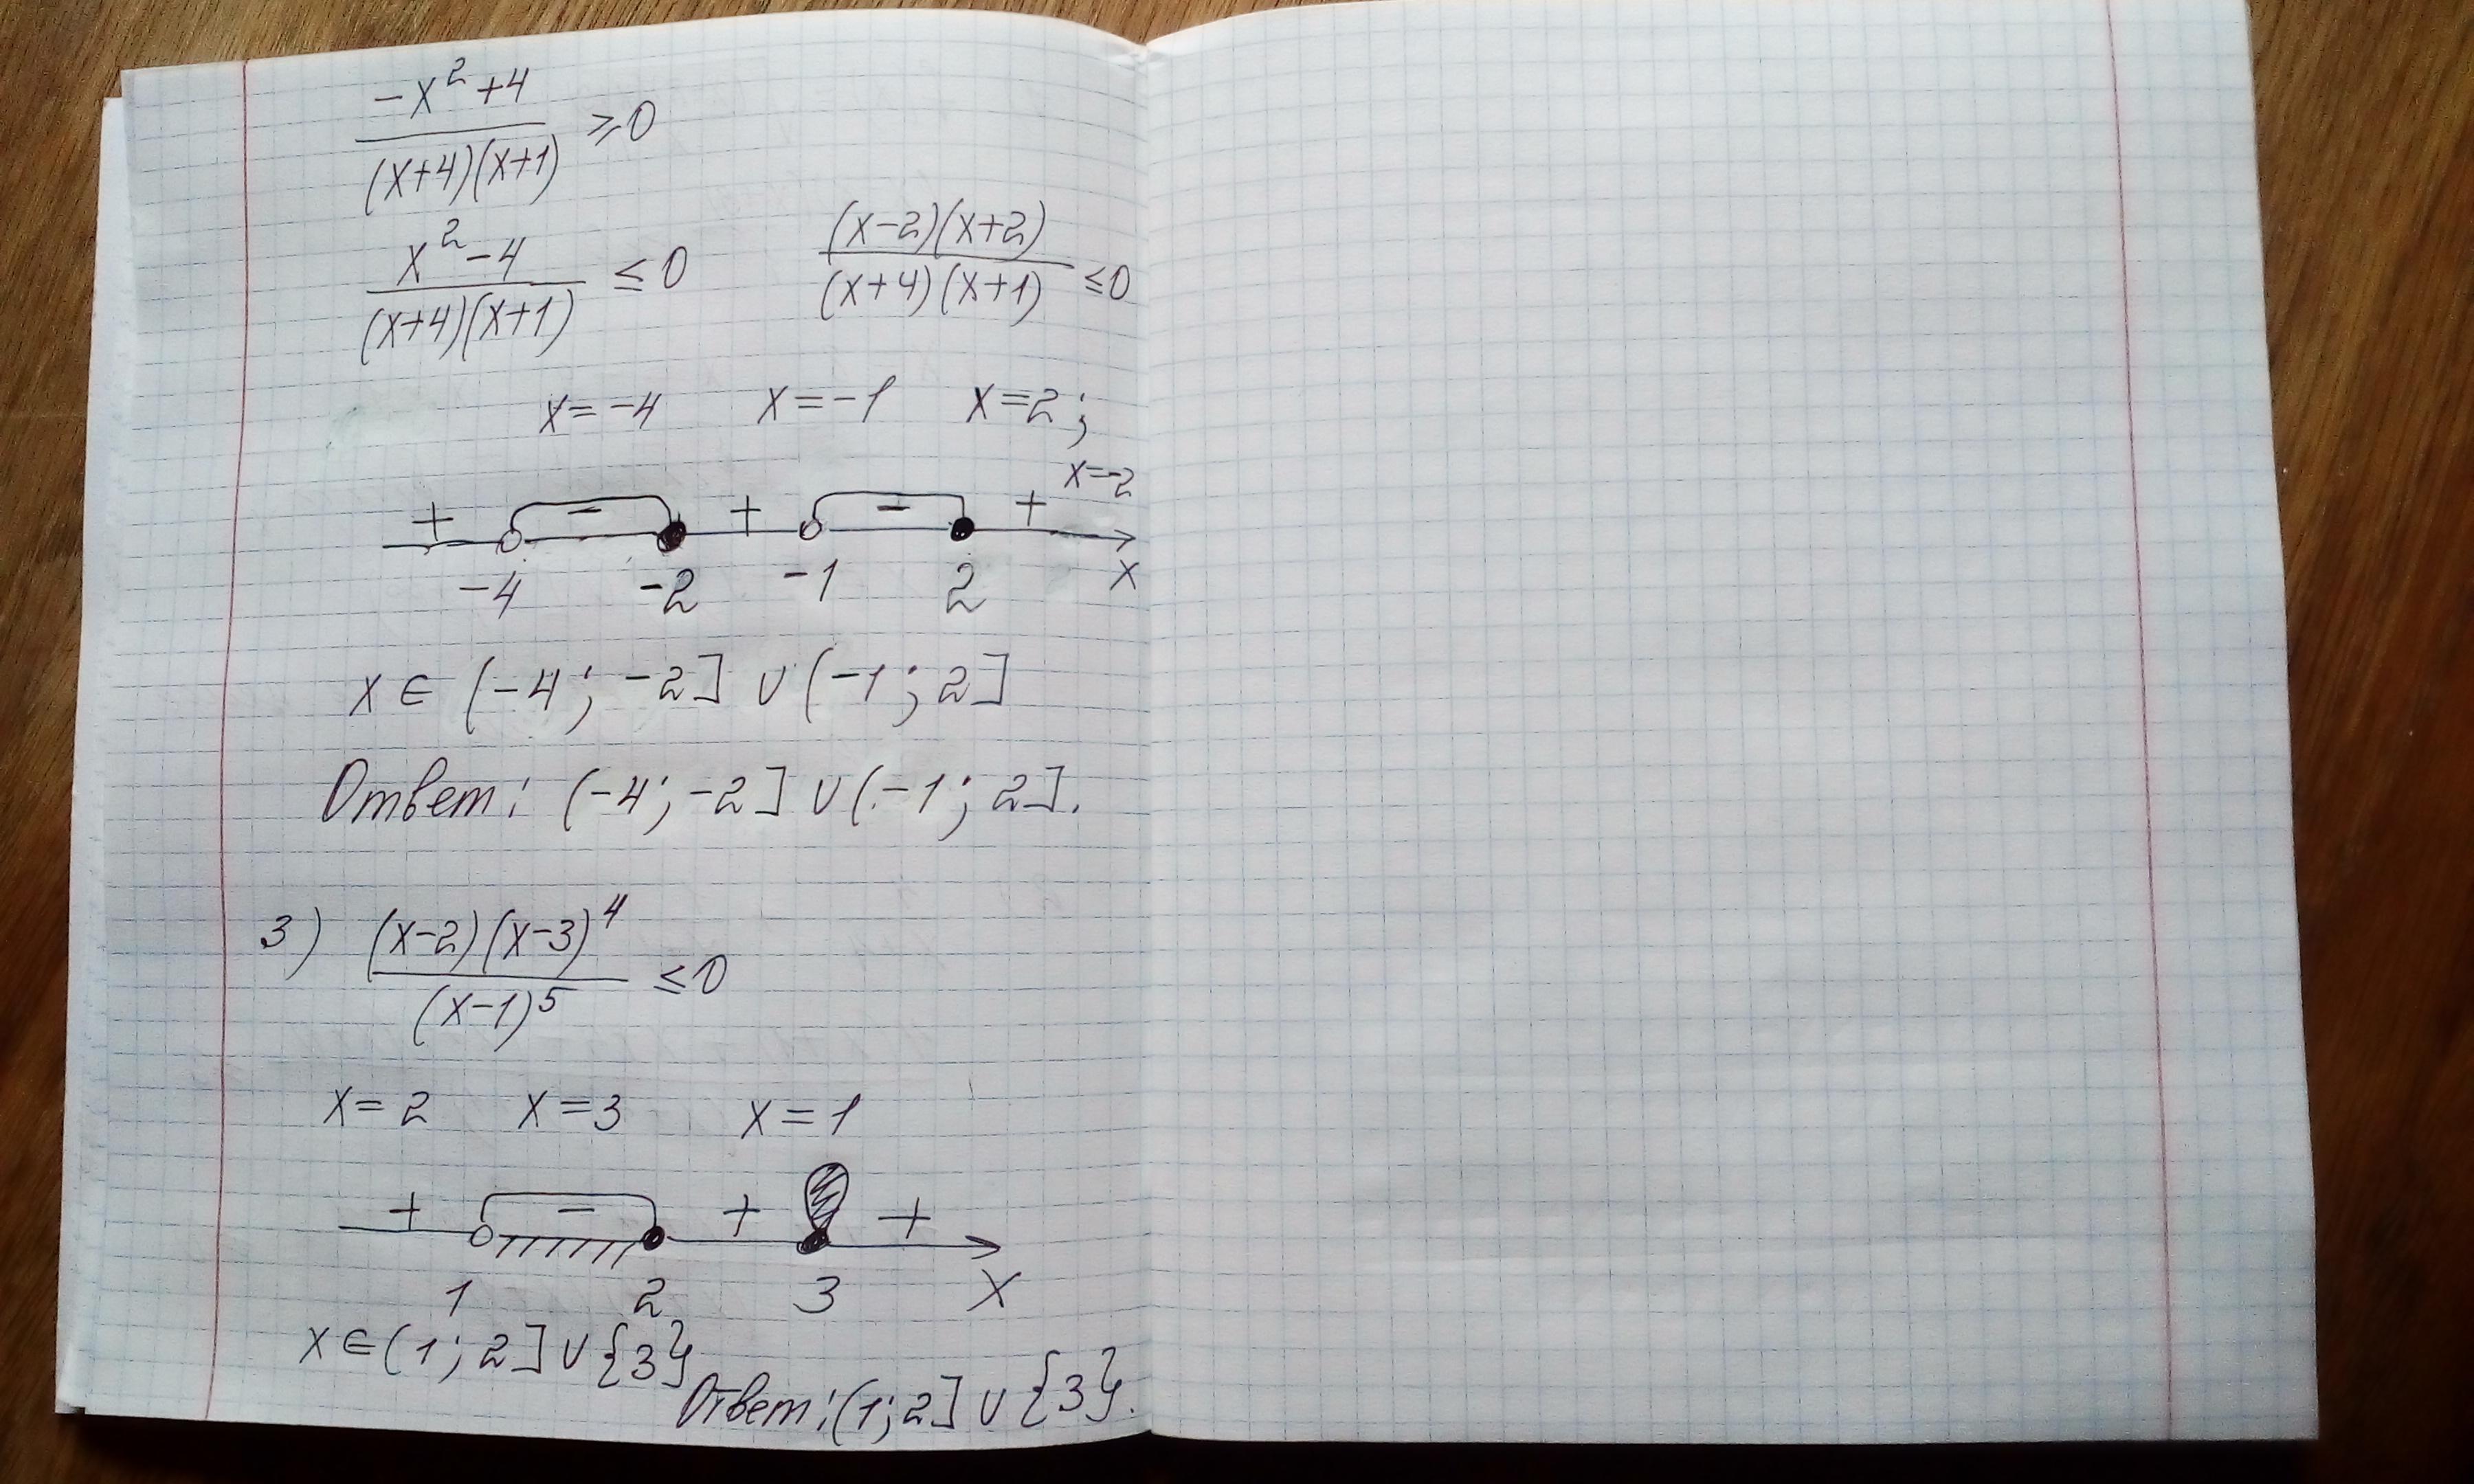 (-x²+4)/((x+4)(x+1)) ≥ 0
(x²-4)/((x+4)(x+1)) ≤ 0   ((x-2)(x+2))/((x+4)(x+1)) ≤ 0
x=-4   x=-1   x=2;
x=-2
+ - + - +
-4 -2 -1 2 x
x ∈ (-4; -2] ∪ (-1; 2]
Ответ: (-4; -2] ∪ (-1; 2].
3) ((x-2)(x-3)⁴)/((x-1)⁵) ≤ 0
x=2   x=3   x=1
+ - + +
1 2 3 x
x ∈ (1; 2] ∪ {3}
Ответ: (1; 2] ∪ {3}.